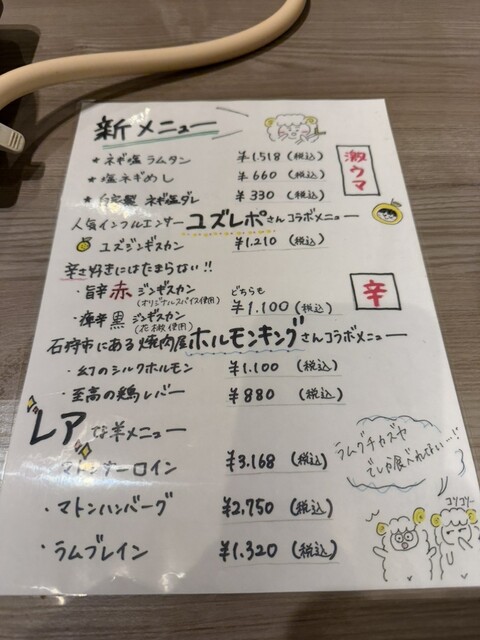 新メニュー
★ ネギ塩 ラムタン ¥1,518 (税込)
★ 塩ネギめし ¥660 (税込)
★ 自家製 ネギ塩ダレ ¥330 (税込)
激ウマ
人気インフルエンサー ユズレポさんコラボメニュー
ユズジンギスカン ¥1,210 (税込)
辛さ好きにはたまらない!!
・旨辛 赤 ジンギスカン
(オリジナルスパイス使用)
どちらも
¥1,100 (税込)
辛
・痺辛 黒 ジンギスカン
(花椒使用)
石狩市にある焼肉屋ホルモンキングさんコラボメニュー
・幻のシルクホルモン ¥1,100 (税込)
・至高の鶏レバー ¥880 (税込)
レアな羊メニュー
マトンサーロイン ¥3,168 (税込)
・マトンハンバーグ ¥2,750 (税込)
・ラムブレイン ¥1,320 (税込)
ラムグチャズヤ
でしか食べれない
コソコソ